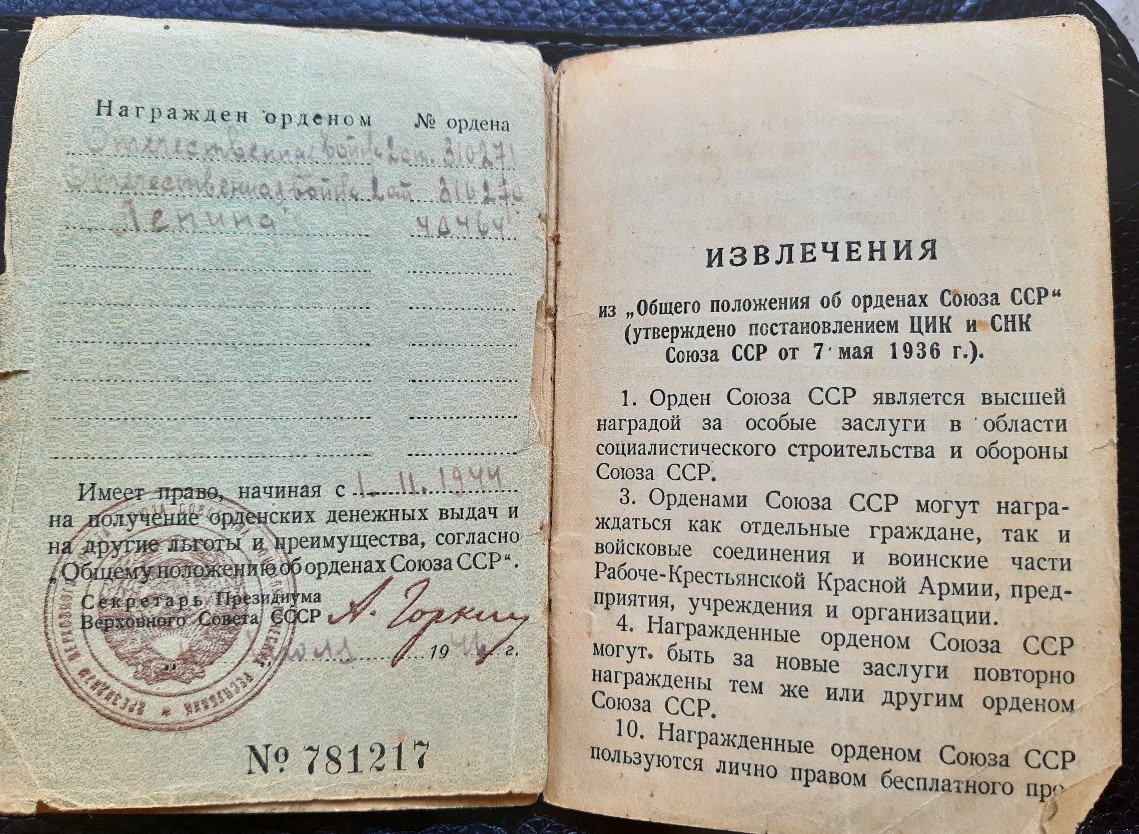 Награжден орденом № ордена
Отечественная войн 2 ст. 310271
Отечественная войн 2 ст 310270
Ленина 40464
Имеет право, начиная с 1. II. 1944
на получение орденских денежных выдач и
на другие льготы и преимущества, согласно
„Общему положению об орденах Союза ССР“.
Секретарь Президиума
Верховного Совета СССР А. Горкин
19 46 г.
№ 781217
ИЗВЛЕЧЕНИЯ
из „Общего положения об орденах Союза ССР“
(утверждено постановлением ЦИК и СНК
Союза ССР от 7 мая 1936 г.).
1. Орден Союза ССР является высшей
наградой за особые заслуги в области
социалистического строительства и обороны
Союза ССР.
3. Орденами Союза ССР могут награ-
ждаться как отдельные граждане, так и
войсковые соединения и воинские части
Рабоче-Крестьянской Красной Армии, пред-
приятия, учреждения и организации.
4. Награжденные орденом Союза ССР
могут быть за новые заслуги повторно
награждены тем же или другим орденом
Союза ССР.
10. Награжденные орденом Союза ССР
пользуются лично правом бесплатного про